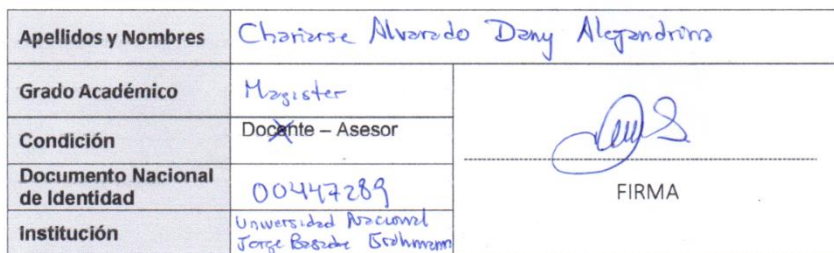 Apellidos y Nombres Chariarse Alvarado Dany Alejandrina
Grado Académico Magister
Condición Docente – Asesor
Documento Nacional
de Identidad 00447289
FIRMA
Institución Universidad Nacional
Jorge Basadre Grohmann